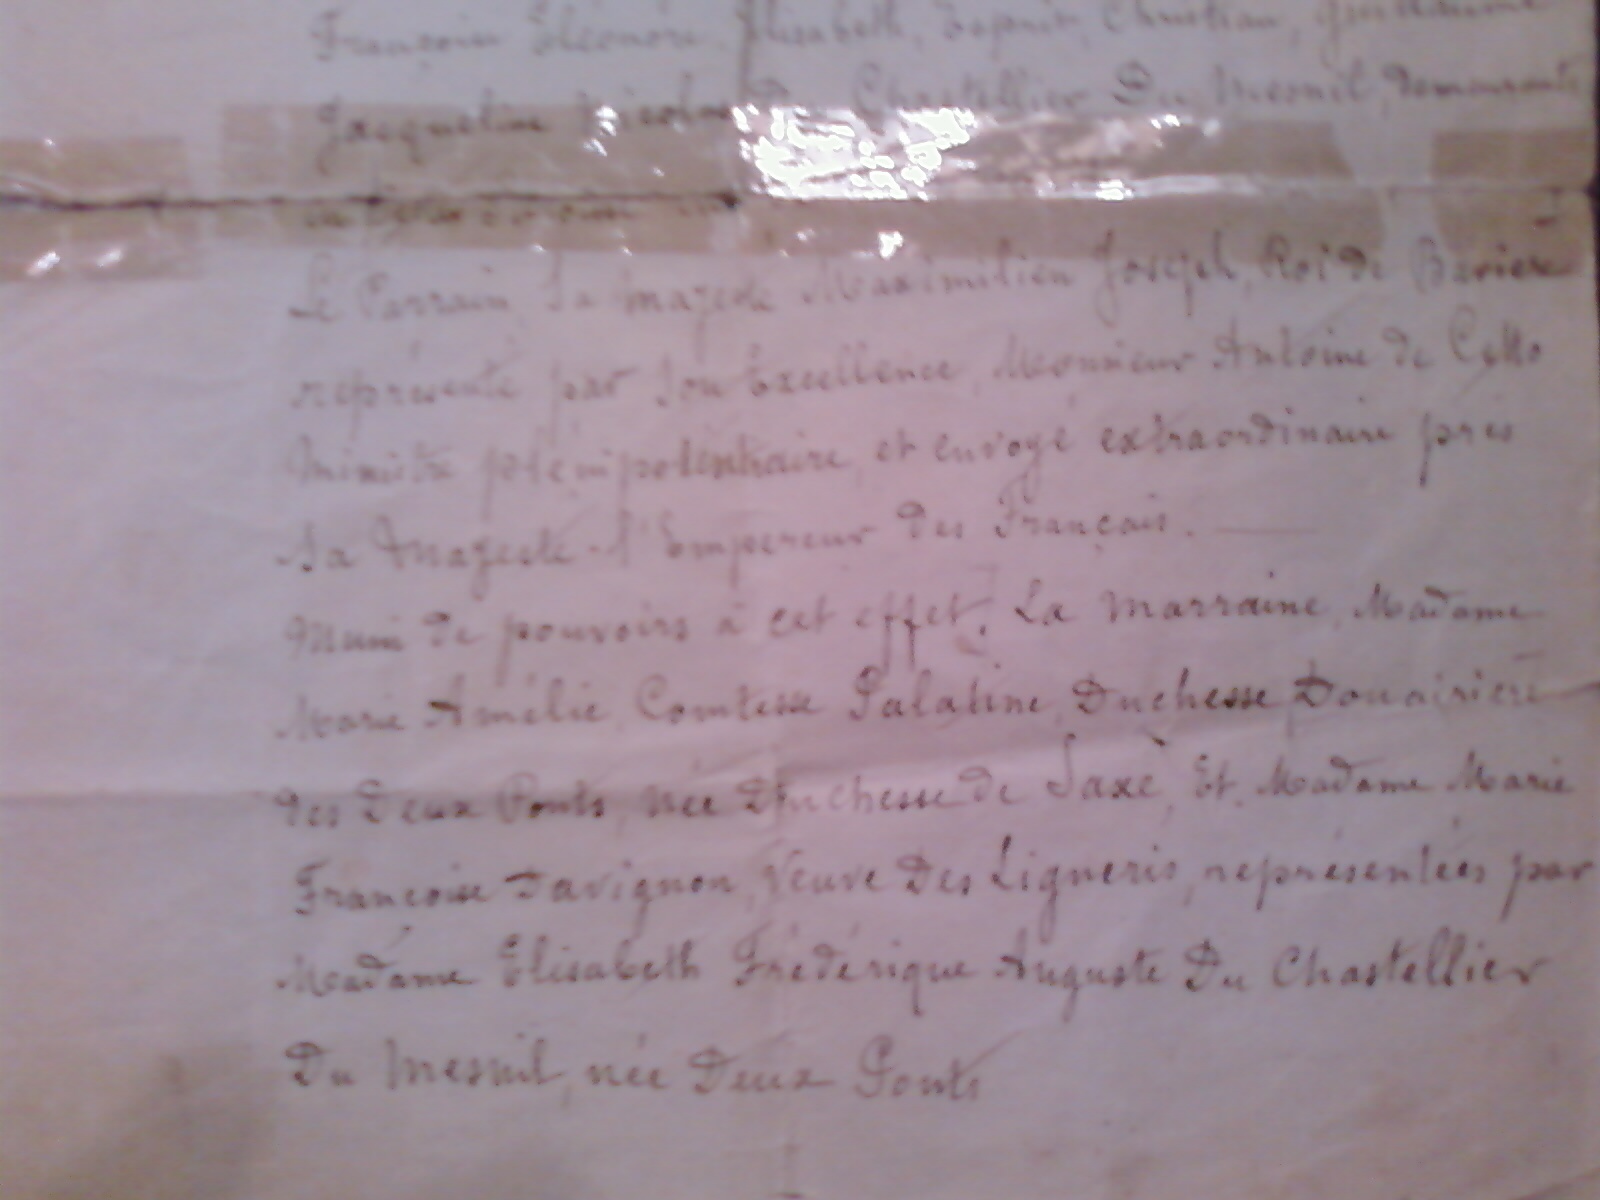 Françoise Eléonore, Elisabeth, Esprit, Christian, Guillaume
Jacqueline Nicolas Du Chastellier Du Mesnil, demeurants
Le Parrain, Sa Majesté Maximilien Joseph, Roi de Bavière
représenté par Son Excellence, Monsieur Antoine de Cetto
Ministre plénipotentiaire, et envoyé extraordinaire près
Sa Majesté l'Empereur des Français.
Muni de pouvoirs à cet effet. La Marraine, Madame
Marie Amélie, Comtesse Palatine, Duchesse Douairière
des Deux Ponts, née Duchesse de Saxe, Et, Madame Marie
Françoise Davignon, Veuve Des Ligneris, représentées par
Madame Elisabeth Frédérique Auguste Du Chastellier
Du Mesnil, née Deux Ponts